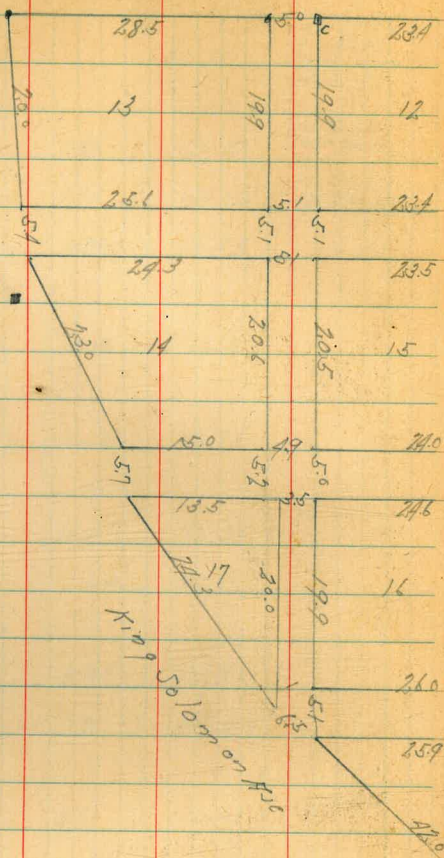 28.5 5.0 C 23.4
20.0 13 19.9 19.9 12
25.6 5.1 23.4
5.4 5.1 5.1
24.3 5.1 23.5
23.0 14 20.6 20.5 15
15.0 4.9 24.0
5.7 5.2 5.0
13.5 3.5 24.6
24.2 17 20.0 19.9 16
26.0
6.3 5.1
25.9
King Solomon Ave
42.0